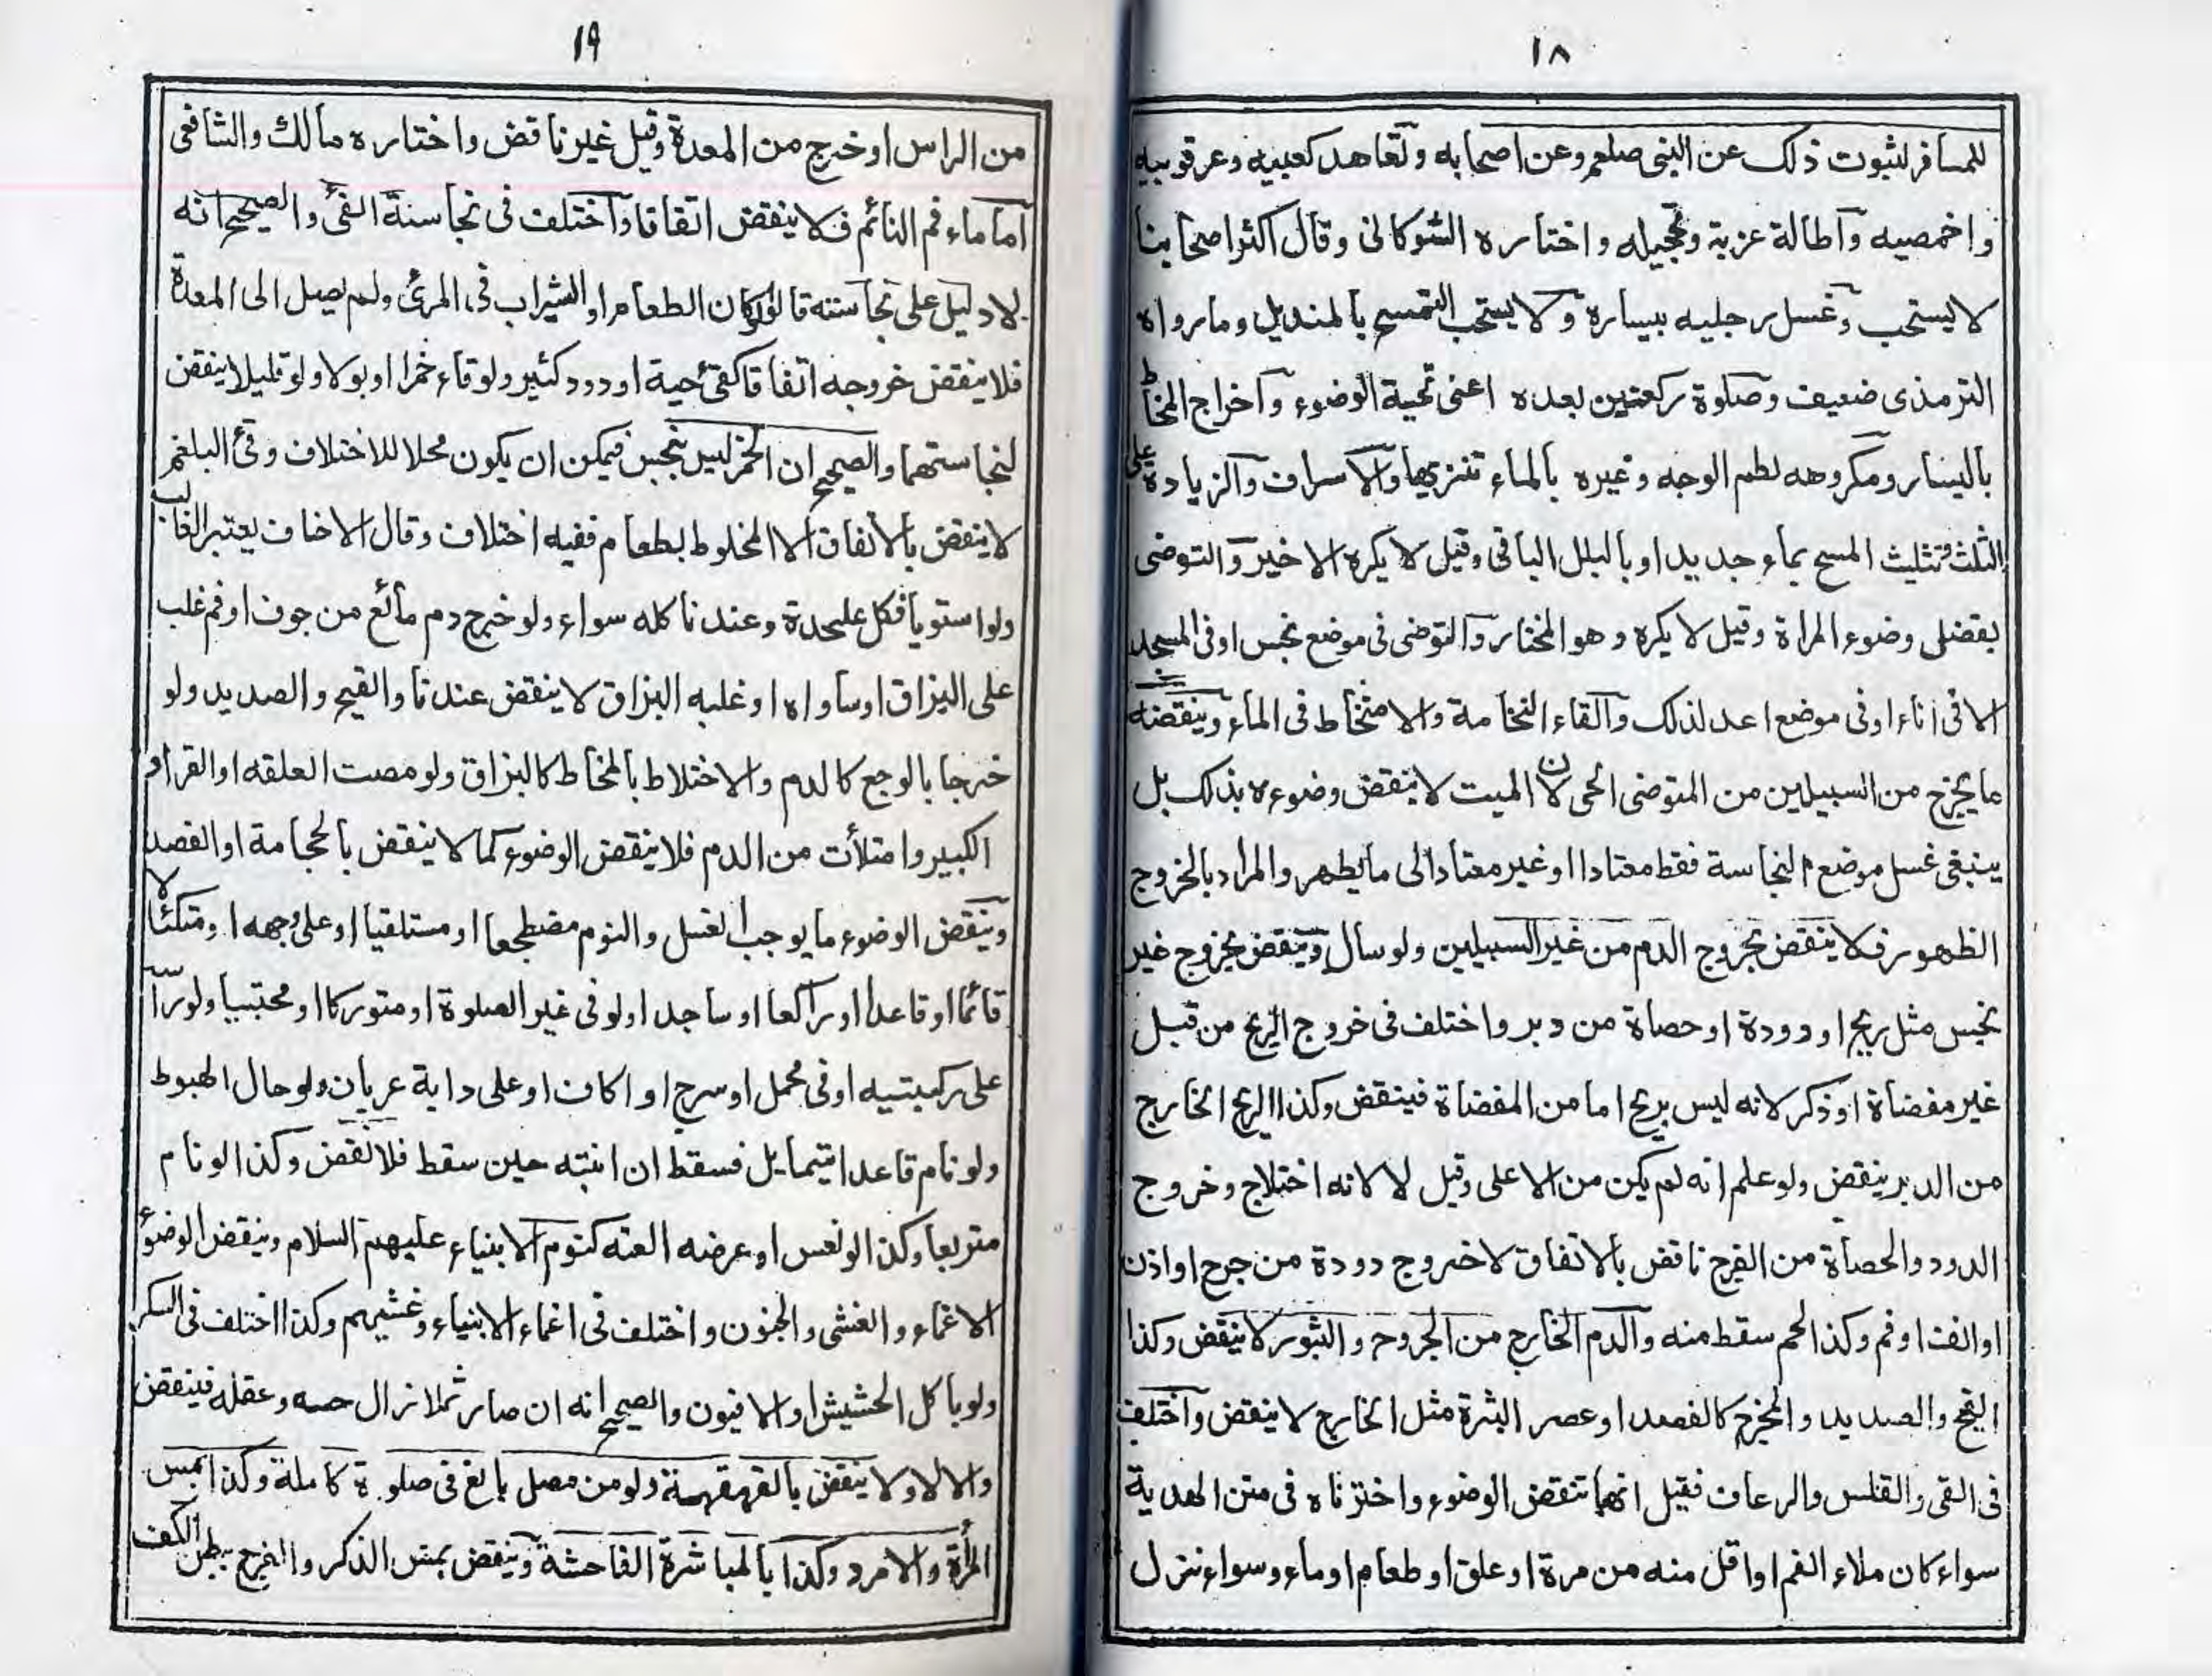 ١٨
للمسافر لثبوت ذلك عن النبى صلعم وعن اصحابه وتعاهد كعبيه وعرقوبيه
واخمصيه واطالة غرته وتحجيله واختاره الشوكانى وقال اكثر اصحابنا
لا يستحب وغسل رجليه بيساره ولا يستحب التمسح بالمنديل وما رواه
الترمذى ضعيف وصلوة ركعتين بعده اعنى تحية الوضوء واخراج المخاط
باليسار ومكروهه لطم الوجه وغيره بالماء تنزيها والاسراف والزيادة على
الثلث وتثليث المسح بماء جديد او بالبلل الباقى وقيل لا يكره الاخير والتوضى
بفضل وضوء المراة وقيل لا يكره وهو المختار والتوضى فى موضع نجس او فى المسجد
الا فى اناء او فى موضع اعد لذلك والقاء النخامة والامتخاط فى الماء وينقضه
ما يخرج من السبيلين من المتوضى الحى لان الميت لا ينقض وضوءه بذلك بل
ينبغى غسل موضع النجاسة فقط معتادا او غير معتاد الى ما يطهر والمراد بالخروج
الظهور فلا ينقض بخروج الدم من غير السبيلين ولو سال وينقض بخروج غير
نجس مثل ريح او دودة او حصاة من دبر واختلف فى خروج الريح من قبل
غير مفضاة او ذكر لانه ليس بريح اما من المفضاة فينقض وكذا الريح الخارج
من الدبر ينقض ولو علم انه لم يكن من الاعلى وقيل لا لانه اختلاج وخروج
الدود والحصاة من الفرج ناقض بالاتفاق لا خروج دودة من جرح او اذن
او انف او فم وكذا لحم سقط منه والدم الخارج من الجروح والبثور لا ينقض وكذا
القيح والصديد والمخرج كالفصد او عصر البثرة مثل الخارج لا ينقض واختلف
فى القى والقلس والرعاف فقيل انها تنقض الوضوء واخترناه فى متن الهدية
سواء كان ملاء الفم او اقل منه من مرة او علق او طعام او ماء وسواء نزل
١٩
من الراس او خرج من المعدة وقيل غير ناقض واختاره مالك والشافعى
اما ماء فم النائم فلا ينقض اتفاقا واختلف فى نجاسة القئ والصحيح انه
لا دليل على نجاسته قالوا لو كان الطعام او الشراب فى المرئ ولم يصل الى المعدة
فلا ينقض خروجه اتفاقا كقئ حية او دود كثير ولو قاء خمرا او بولا ولو قليلا ينقض
لنجاستهما والصحيح ان الخمر ليس بنجس فيمكن ان يكون محلا للاختلاف وقئ البلغم
لا ينقض بالاتفاق الا المخلوط بطعام ففيه اختلاف وقال الاحناف يعتبر الغالب
ولو استويا فكل عليحدة وعندنا كله سواء ولو خرج دم مائع من جوف او فم غلب
على البزاق او ساواه او غلبه البزاق لا ينقض عندنا والقيح والصديد ولو
خرجا بالوجع كالدم والاختلاط بالمخاط كالبزاق ولو مصت العلقه او القراد
الكبير وامتلأت من الدم فلا ينقض الوضوء كما لا ينقض بالحجامة او الفصد
وينقض الوضوء ما يوجب الغسل والنوم مضطجعا او مستلقيا او على وجهه او متكئا لا
قائما او قاعدا او راكعا او ساجدا ولو فى غير الصلوة او متوركا او محتبيا ولو راسه
على ركبتيه او فى محمل او سرج او اكاف او على دابة عريان ولو حال الهبوط
ولو نام قاعدا يتمايل فسقط ان انتبه حين سقط فلا نقض وكذا لو نام
متربعا وكذا لو نعس او عرضه العته كنوم الانبياء عليهم السلام وينقض الوضوء
الاغماء والغشى والجنون واختلف فى اغماء الانبياء وغشيهم وكذا اختلف فى السكر
ولو باكل الحشيش او الافيون والصحيح انه ان صار ثملا زال حسه وعقله فينقض
والا لا ولا ينقض بالقهقهة ولو من مصل بالغ فى صلوة كاملة وكذا بمس
المرأة والامرد وكذا بالمباشرة الفاحشة وينقض بمس الذكر والفرج ببطن الكف